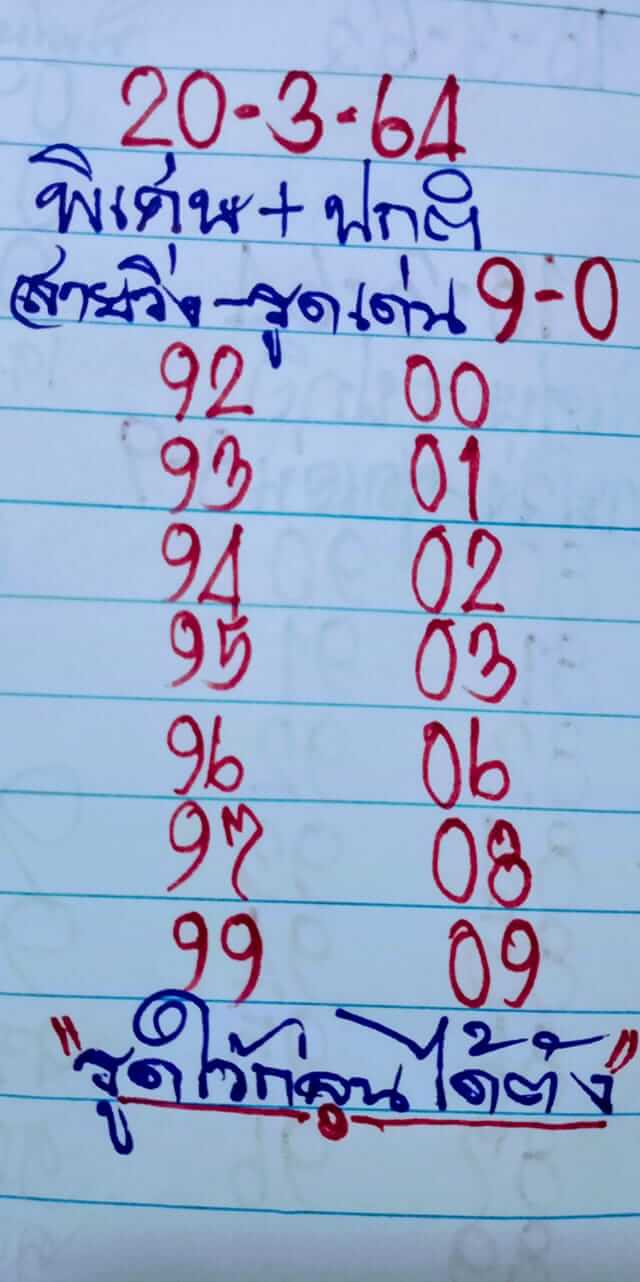 20-3-64
พิเศษ + ปกติ
สายวิ่ง - รูดเด่น 9-0
92 00
93 01
94 02
95 03
96 06
97 08
99 09
"รูดไว้ก่อนได้ตัง"